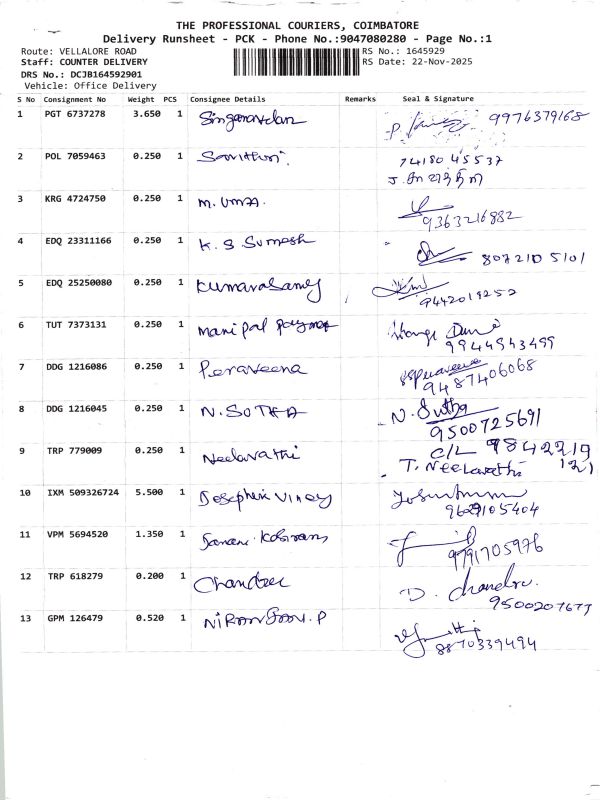 THE PROFESSIONAL COURIERS, COIMBATORE
Delivery Runsheet - PCK - Phone No.:9047080280 - Page No.:1
Route: VELLALORE ROAD RS No.: 1645929
Staff: COUNTER DELIVERY RS Date: 22-Nov-2025
DRS No.: DCJB164592901
Vehicle: Office Delivery
S No Consignment No Weight PCS Consignee Details Remarks Seal & Signature
1 PGT 6737278 3.650 1 Singaravelan 9976379168
2 POL 7059463 0.250 1 Savithri. 74180 45537
ஜ. சாவித்திரி
3 KRG 4724750 0.250 1 M. UMA.
9363216882
4 EDQ 23311166 0.250 1 K. S Sumesh 807210 5101
5 EDQ 25250080 0.250 1 Kumarasamy
9442019252
6 TUT 7373131 0.250 1 Manipal
9944943499
7 DDG 1216086 0.250 1 Peraveena
9487406068
8 DDG 1216045 0.250 1 N. SUTHA N. Sutha
9500725691
9 TRP 779009 0.250 1 Neelavathi C/L 9842219
T. Neelavathi 121
10 IXM 509326724 5.500 1 Josephin Vinoy
9629105404
11 VPM 5694520 1.350 1
9791705976
12 TRP 618279 0.200 1 Chandru D. Chandru.
9500207677
13 GPM 126479 0.520 1 NIRANJAN. P
8870339494